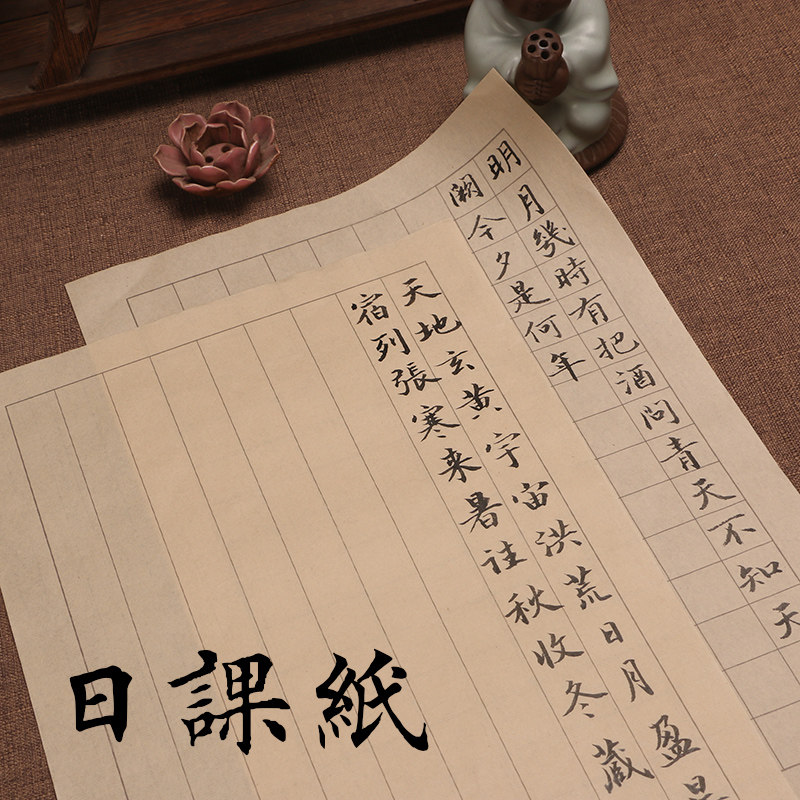 明月幾時有把酒問青天不知天
闕今夕是何年
天地玄黄宇宙洪荒日月盈
宿列張寒来暑往秋收冬藏
日課紙